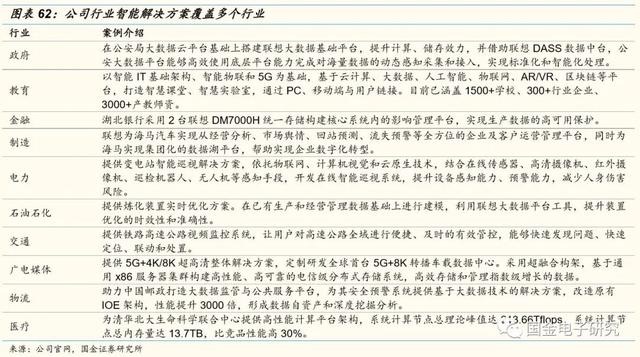 图表 62：公司行业智能解决方案覆盖多个行业
行业 案例介绍
政府 在公安局大数据云平台基础上搭建联想大数据基础平台，提升计算、储存效力，并借助联想 DASS 数据中台，公
安大数据平台能够高效使用底层平台能力完成对海量数据的动态感知采集和接入，实现标准化和智能化处理。
教育 以智能 IT 基础架构、智能物联和 5G 为基础，基于云计算、大数据、人工智能、物联网、AR/VR、区块链等平
台，打造智慧课堂、智慧实验室，通过 PC、移动端与用户链接。目前已涵盖 1500+学校、300+行业企业、
3000+产教师资。
金融 湖北银行采用 2 台联想 DM7000H 统一存储构建核心系统内的影响管理平台，实现生产数据的高可用保护。
制造 联想为海马汽车实现从经营分析、市场舆情、回站预测、流失预警等全方位的企业及客户运营管理平台，同时为
海马实现集团化的数据湖平台，帮助实现企业数字化转型。
电力 提供变电站智能巡视解决方案，依托物联网、计算机视觉和云原生技术，结合在线传感器、高清摄像机、红外摄
像机、巡检机器人、无人机等感知手段，开发在线智能巡视系统，提升设备感知能力、预警能力，减少人身伤害
风险。
石油石化 提供炼化装置实时优化方案。在已有生产和经营管理数据基础上进行建模，利用联想大数据平台工具，提升装置
优化的时效性和准确性。
交通 提供铁路高速公路视频监控系统，让用户对高速公路全域进行便捷、及时的有效管控，能够快速发现问题、快速
定位、联动和处置。
广电媒体 提供 5G+4K/8K 超高清整体解决方案，定制研发全球首台 5G+8K 转播车载数据中心。采用超融合构架，基于通
用 x86 服务器集群构建高性能、高可靠的电信级分布式存储系统，高效存储和管理指数级增长的数据。
物流 助力中国邮政打造大数据监管与公共服务平台，为其安全预警系统提供基于大数据技术的解决方案，改造原有
IOE 架构，性能提升 3000 倍，形成数据自资产和深度挖掘分析。
医疗 为清华北大生命科学联合中心提供高性能计算平台架构，系统计算节点总理论峰值达 213.66Tflops，系统计算节
点总内存量达 13.7TB，比竞品性能高 30%。
国金电子研究
来源：公司官网，国金证券研究所